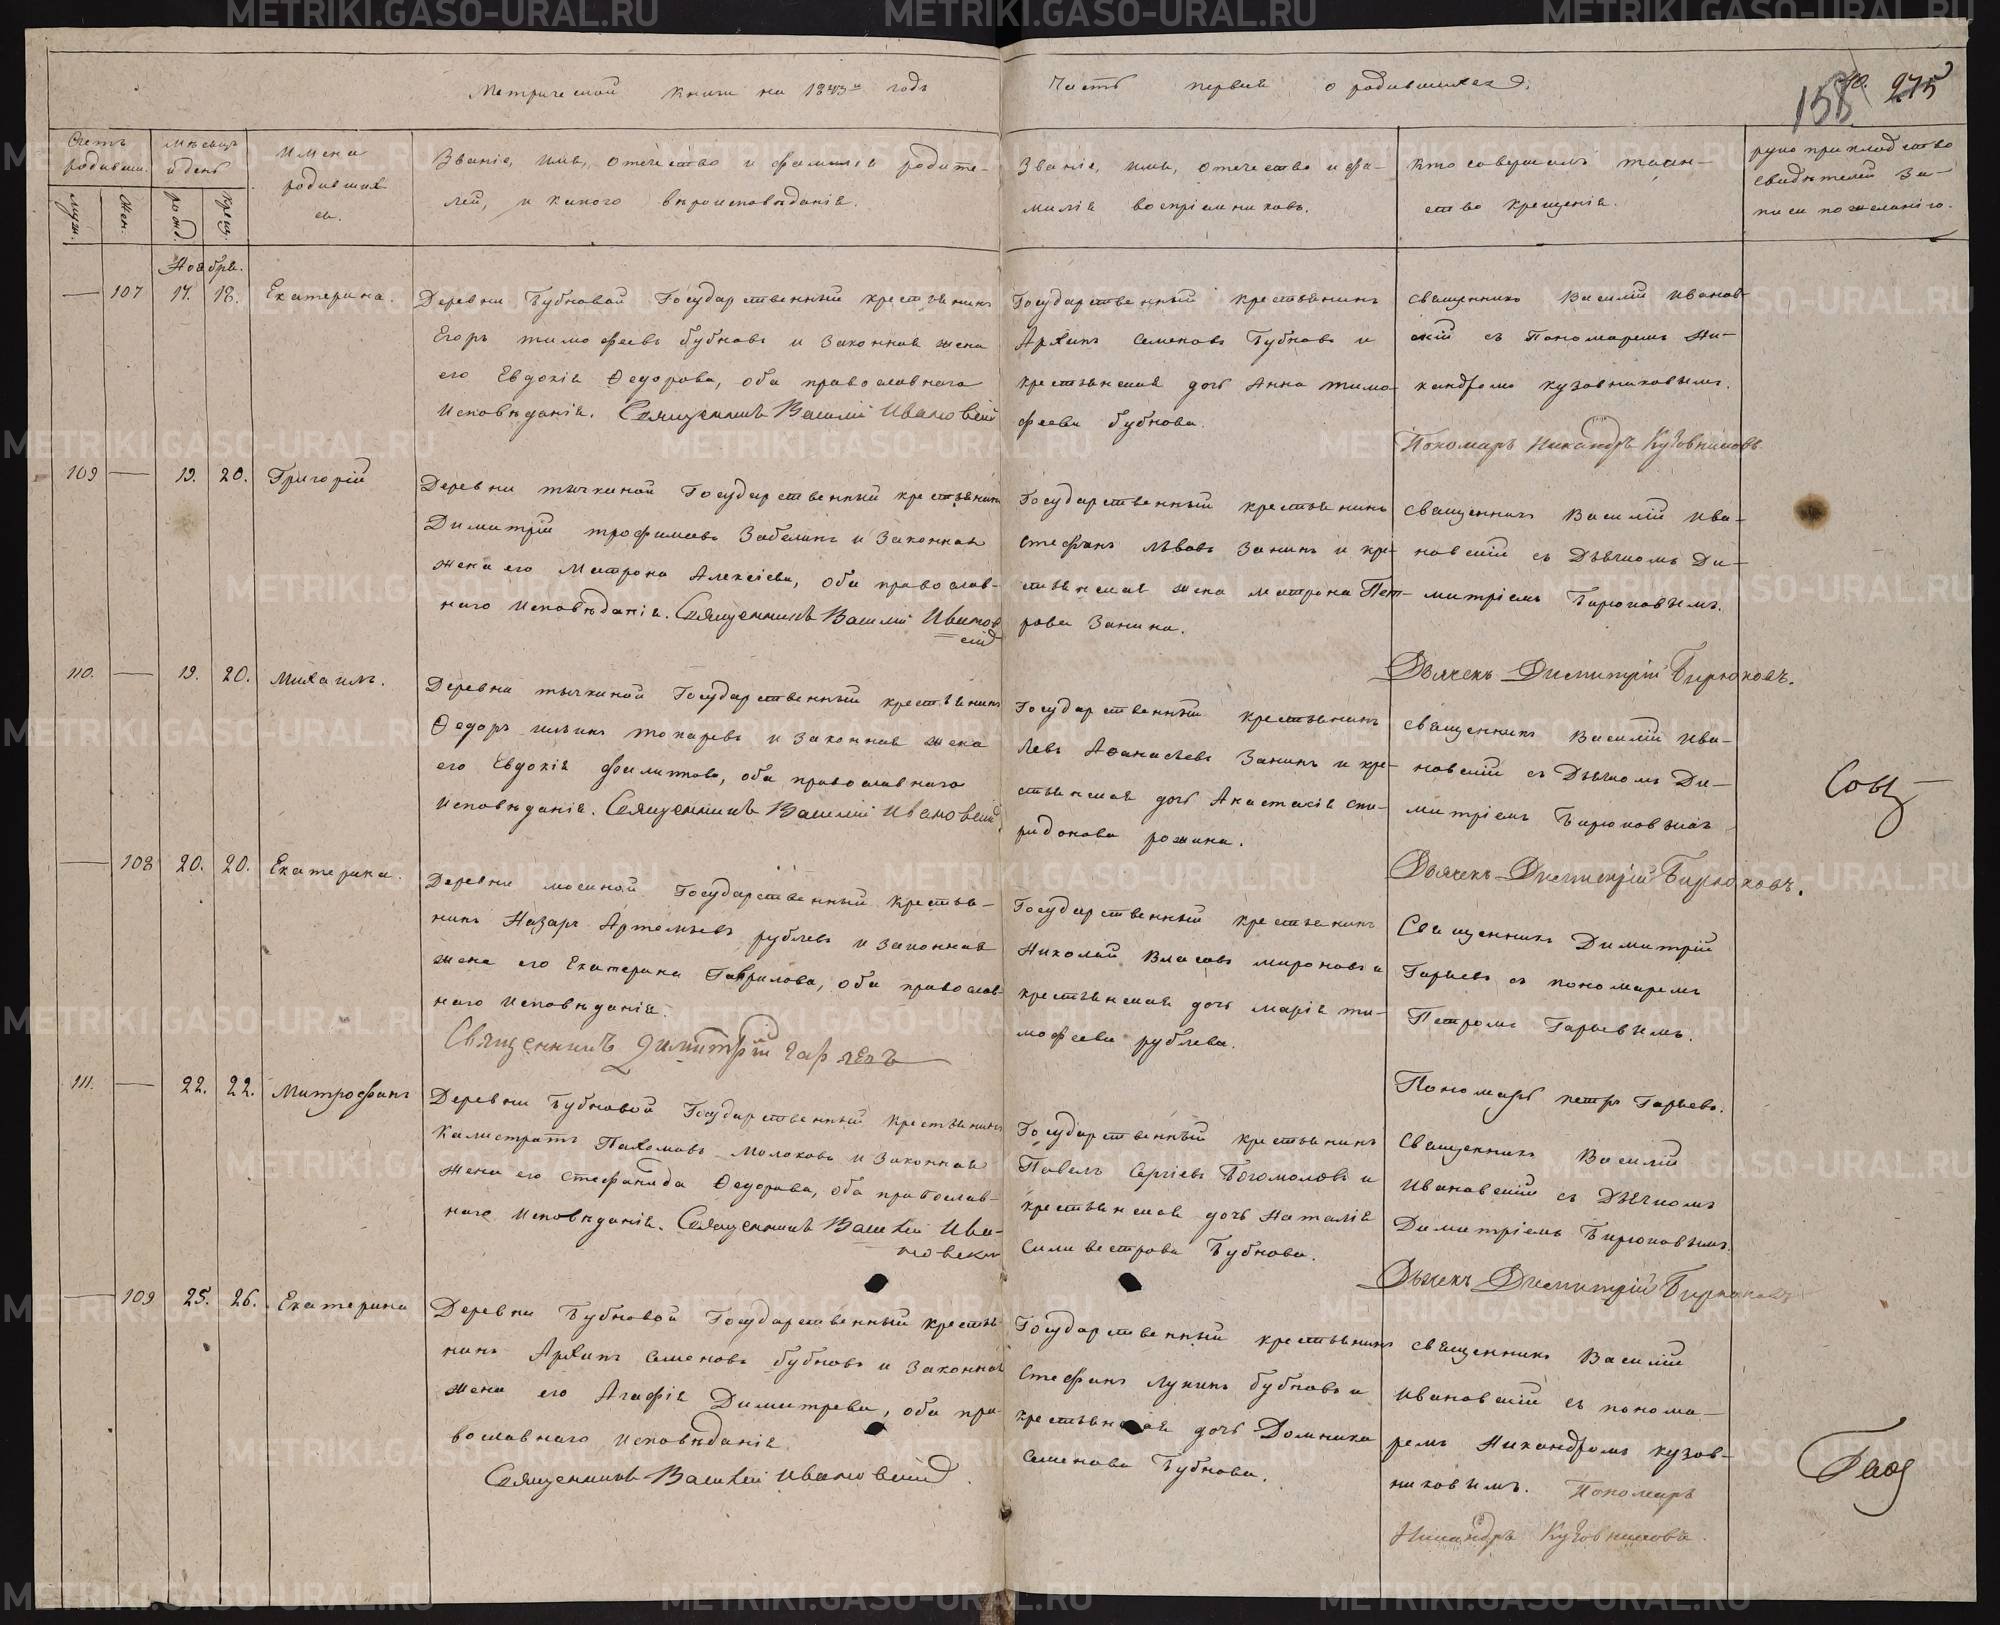 Метрической книги на 1843й годъ
Часть первая о родившихся.
158 275
Счетъ родивши.
Мѣсяцъ и день
Имена родивших ся.
Званіе, имя, отечество и фамилія родите-
лей, и какого вѣроисповѣданія.
Званіе, имя, отечество и фа-
милія воспріемниковъ.
Кто совершалъ таин-
ство крещенія.
рукоприкладство
свидѣтелей за-
писи по желанію.
муж. жен. рожд. крещ.
Ноября.
— 107 17. 18. Екатерина.
Деревни Бубновой Государственный крестьянинъ
Егоръ тимофеевъ бубновъ и законная жена
его Евдокія Ѳедорова, оба православнаго
Исповѣданія. Священникъ Василій Ивановскій
Государственный крестьянинъ
Архипъ Семеновъ Бубновъ и
крестьянская дочь Анна тимо-
феева бубнова.
Священникъ Василій Иванов-
скій съ Пономаремъ Ни-
кандромъ кузовниковымъ.
Пономарь Никандръ Кузовниковъ
109 — 19. 20. Григорій
Деревни тычкиной Государственный крестьянинъ
Димитрій трофимовъ Забелинъ и законная
жена его Матрона Алексіева, оба православ-
наго Исповѣданія. Священникъ Василій Иванов
скій
Государственный крестьянинъ
Стефанъ Львовъ Занинъ и кре-
стьянская жена матрона Пет-
рова Занина.
Священникъ Василій Ива-
новскій съ Дьячкомъ Ди-
митріемъ Бирюковымъ.
Дьячекъ Димитрій Бирюковъ.
110. — 19. 20. Михаилъ.
Деревни тычкиной Государственный крестьянинъ
Ѳедоръ ильинъ токаревъ и законная жена
его Евдокія филиппова, оба православнаго
Исповѣданія. Священникъ Василій Ивановскій
Государственный крестьянинъ
Левъ Аѳанасьевъ Занинъ и кре-
стьянская дочь Анастасія спи-
ридонова рожина.
Священникъ Василій Ива-
новскій съ Дьячкомъ Ди-
митріемъ Бирюковымъ
Дьячекъ Димитрій Бирюковъ.
— 108 20. 20. Екатерина.
Деревни мосиной Государственный крестья-
нинъ Назаръ Артемьевъ рублевъ и законная
жена его Екатерина Гаврилова, оба православ-
наго Исповѣданія.
Священникъ Димитрій Гаряевъ
Государственный крестьянинъ
Николай Власовъ мироновъ и
крестьянская дочь марія ти-
мофеева рублева.
Священникъ Димитрій
Гаряевъ съ пономаремъ
Петромъ Гаряевымъ.
Пономарь петръ Гаряевъ.
111. — 22. 22. Митрофанъ
Деревни Бубновой Государственный крестьянинъ
Калистратъ Пахомовъ молоковъ и законная
жена его стефанида Ѳедорова, оба православ-
наго Исповѣданія. Священникъ Василій Ива-
новскій
Государственный крестьянинъ
Павелъ Сергіевъ Богомоловъ и
крестьянская дочь Наталія
Силивестрова Бубнова.
Священникъ Василій
Ивановскій съ Дьячкомъ
Димитріемъ Бирюковымъ.
Дьячекъ Димитрій Бирюковъ
— 109 25. 26. Екатерина
Деревни Бубновой Государственный крестья-
нинъ Архипъ Семеновъ бубновъ и законная
жена его Агафія Димитрева, оба пра-
вославнаго Исповѣданія
Священникъ Василій Ивановскій.
Государственный крестьянинъ
Стефанъ лукинъ бубновъ и
крестьянская дочь Домника
Семенова Бубнова.
Священникъ Василій
Ивановскій съ понома-
ремъ Никандромъ кузов-
никовымъ. Пономарь
Никандръ Кузовниковъ.
METRIKI.GASO-URAL.RU